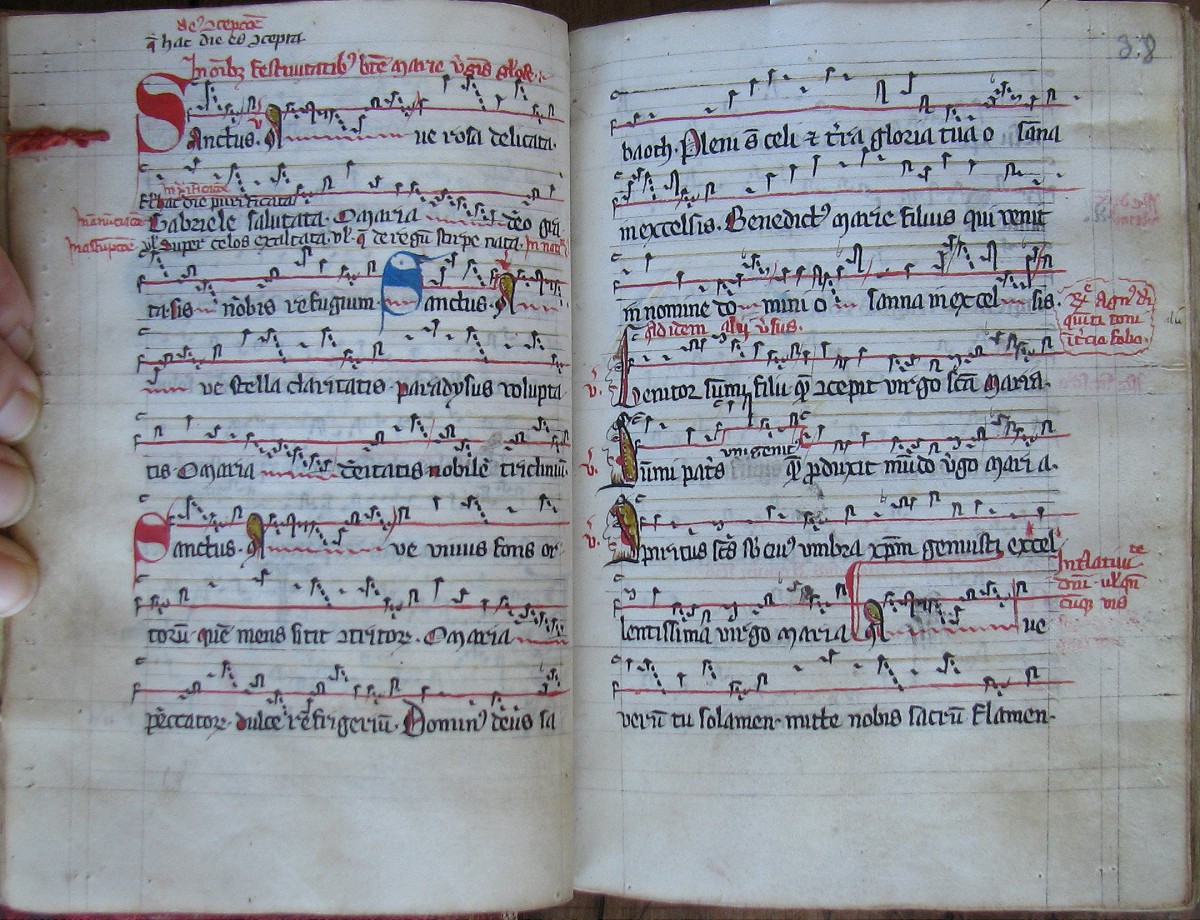 de ɔcepcōe
q̄ hac die es ɔcepta
In oībꝫ festiuitatibꝰ bt̄e marie v̓gīs
Sanctus. v̓ A ue rosa delicata.
Et hac die purificata
Gabriele salutata. O maria deo gra
vl̓ super celos exaltata. vl̓. q̄ de regū stirpe nata.
ta. sis nobis refugium Sanctus. A
ue stella claritatis. paradysus volupta
tis. O maria deitatis nobile tricliniū.
Sanctus. A ue viuus fons or
toꝝ. quē mens sitit ɔtritoꝝ. O maria
peccatoꝝ. dulce refrigeriū. Dominꝰ deus sa
38
baoth. Pleni s̄ celi & t̓ra gloria tua o sāna
in excelsis. Benedictꝰ marie filius qui venit
in nomine do mini o sanna in excel sis.
agnꝰ di
quīti toni
t̓cio folio.
Ad idem v̓sus.
v̓. Genitor sūmi filii quē ɔcepit virgo scā Maria.
vnigenitꝰ
v̓. Sūmi pat̓s quē ꝓduxit mūdo v̓go maria.
v̓. Spiritus scs̄ sb̄ cuiꝰ vmbra xp̄m genuisti excel
lentissima virgo maria A ue
verū tu solamen. mitte nobis sacrū flamen.